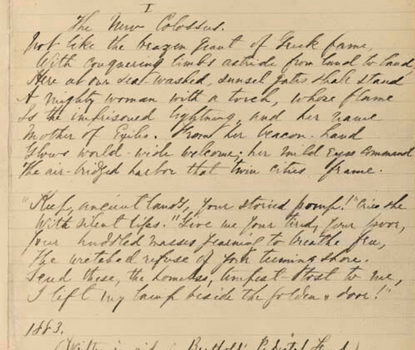 I
The New Colossus.
Not like the brazen giant of Greek fame,
With conquering limbs astride from land to land;
Here at our sea-washed, sunset gates shall stand
A mighty woman with a torch, whose flame
Is the imprisoned lightning, and her name
Mother of Exiles. From her beacon-hand
Glows world-wide welcome; her mild eyes command
The air-bridged harbor that twin cities frame.
"Keep, ancient lands, your storied pomp!" cries she
With silent lips. "Give me your tired, your poor,
Your huddled masses yearning to breathe free,
The wretched refuse of your teeming shore.
Send these, the homeless, tempest-tost to me,
I lift my lamp beside the golden door!"
1883.
(Written in aid of Bartholdi Pedestal Fund)